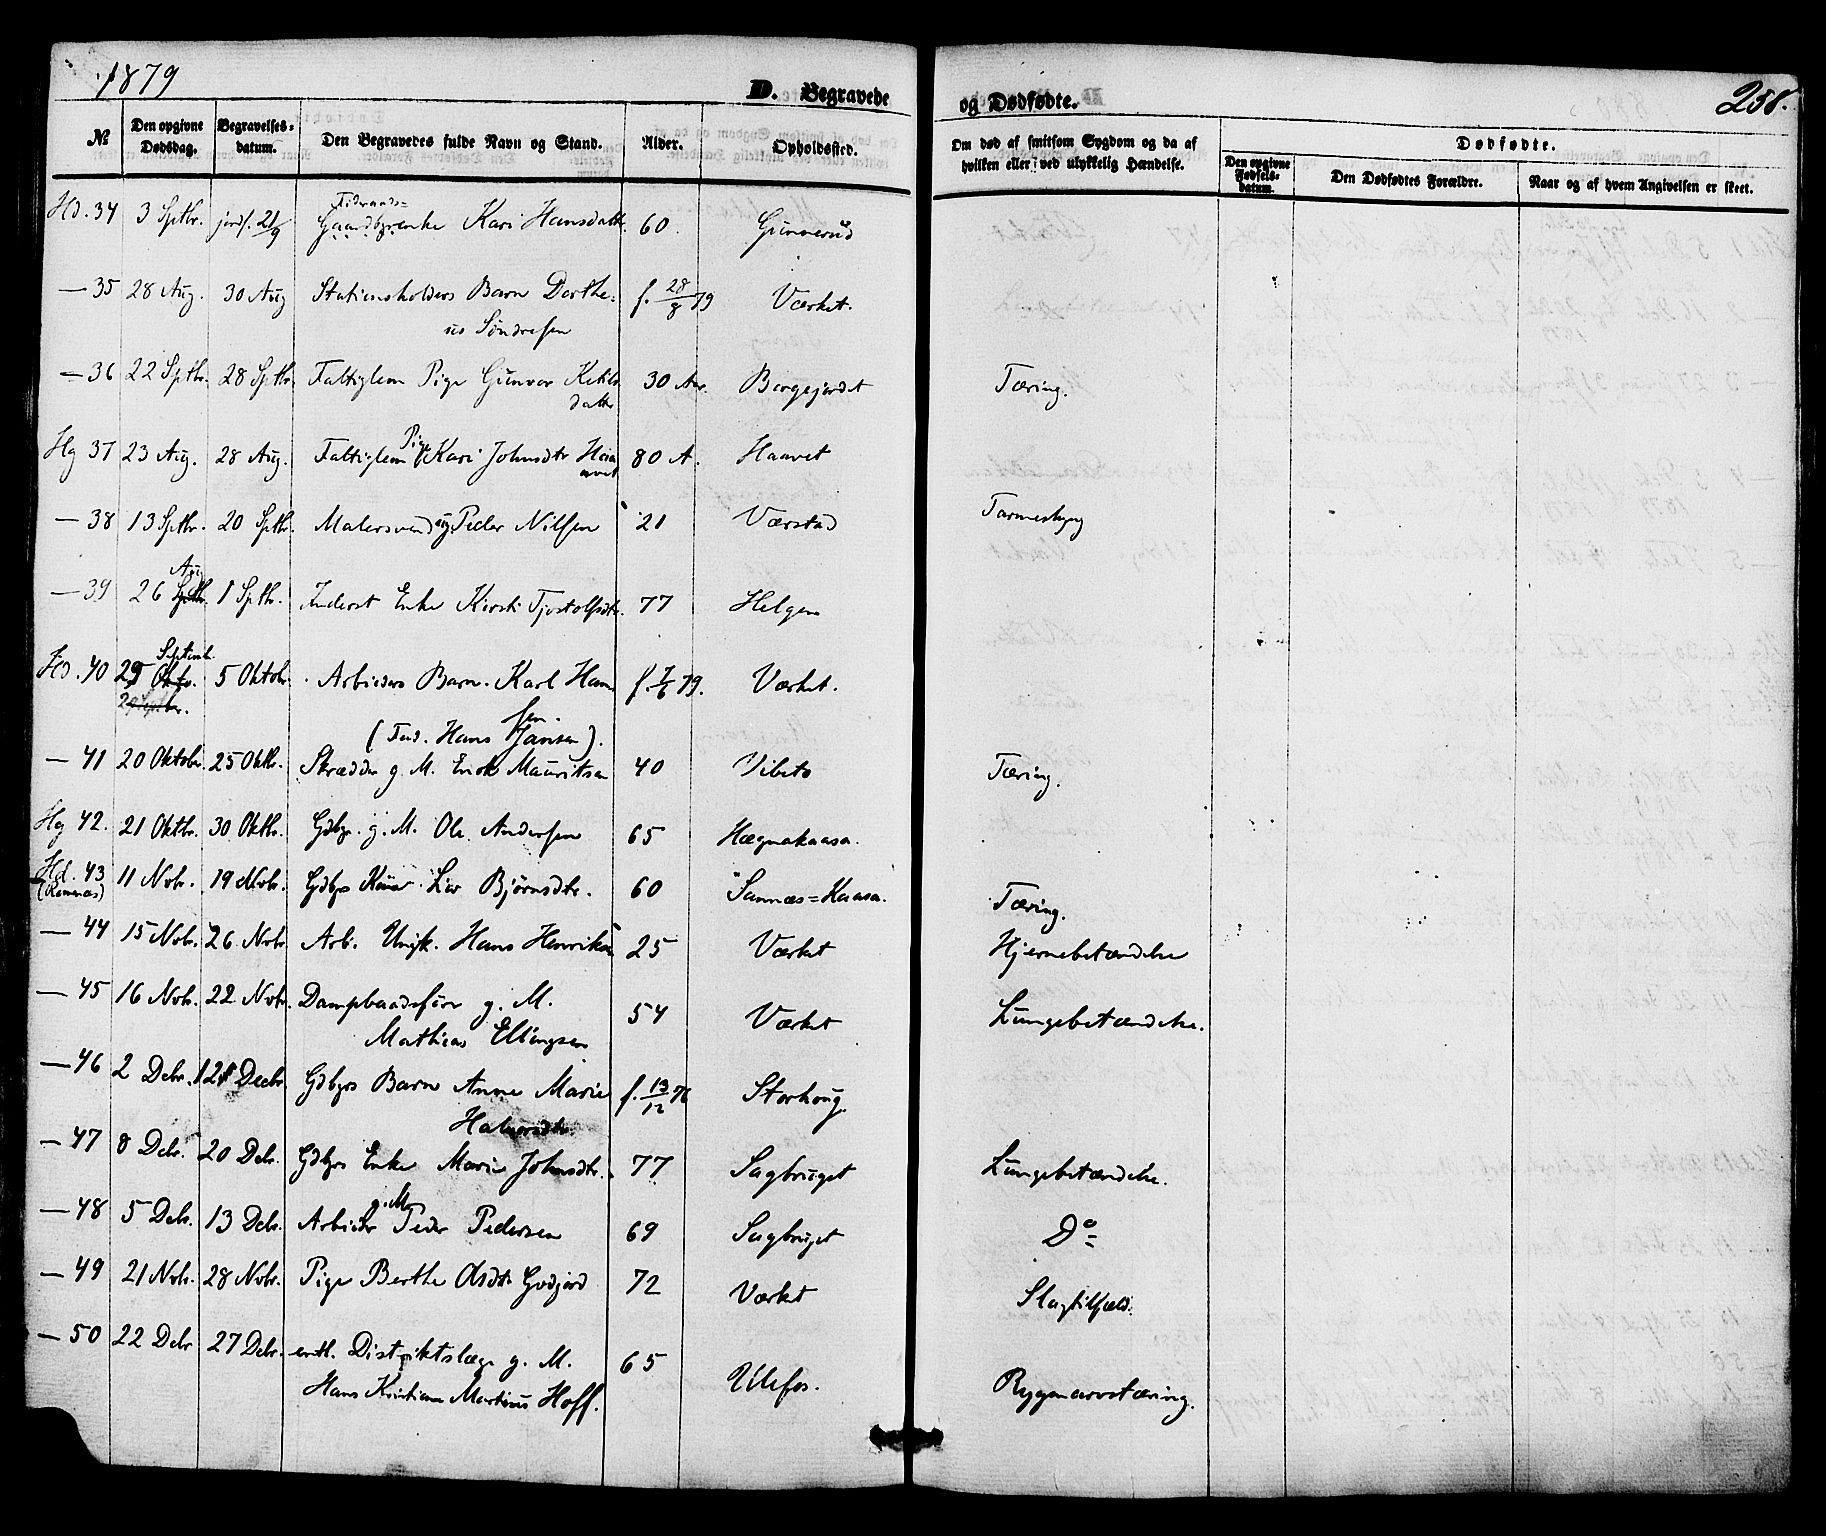 1879
D. Begravede
og Dødfødte.
258.
№ Den opgivne Dødsdag. Begravelses-datum. Den Begravedes fulde Navn og Stand. Alder. Opholdssted. Om død af smitsom Sygdom og da af hvilken eller ved ulykkelig Hændelse. Dødfødte.
Den opgivne Fødsels-datum. Den Dødfødtes Forældre. Naar og af hvem Angivelsen er skeet.
Hd. 34 3 Sptbr. jordf. 21/9 Kari Hansdattr. 60. Gunnerud
— 35 28 Aug. 30 Aug Stationsholders Barn Dorthe=
us Søndresen f. 28/8 79 Værket.
— 36 22 Sptbr. 28 Sptbr. Fattiglem Pige Gunvor Ketils
datter 30 Aar. Borgejordet Tæring.
Hg 37 23 Aug. 28 Aug. Fattiglem Pige Kari Johnsdtr Haa
avet 80 A. Haavet
— 38 13 Sptbr. 20 Sptbr. Malersvend ug. Peder Nilsen 21 Værstad
— 39 26 Aug 1 Sptb. Inderst Enke Kirsti Tjostolfsdtr. 77 Helgen
Hd. 40 29 Septemb. 5 Oktobr. Arbieders Barn. Karl Han
sen. f. 7/6 79. Værket.
(Fad. Hans Jansen).
— 41 20 Oktober. 25 Oktb. Skrædder g. M. Erik Mauritsen 40 Vibeto Tæring.
Hg 42. 21 Oktbr. 30 Oktb. Gdbgr. g. M. Ole Andersen 65 Hægnakaasa.
Hd. 43 11 Nvbr. 19 Nvbr. Gdbgs Kone Liv Bjørnsdtr. 60 Sannæs=Kaasa. Tæring.
(Romnæs)
— 44 15 Nvbr. 26 Nvbr. Arb. Ungk. Hans Henriksen 25 Værket Hjernebetændelse
— 45 16 Nvbr. 22 Nvbr. Dampbaadsfører g. M.
Mathias Ellingsen 54 Værket Lungebetændelse.
— 46 2 Debr. Decbr. Gdbgrs Barn Anne Marie
Halvorsdtr. f. 13/12 76 Storhoug.
— 47 8 Debr. 20 Debr. Gdbgrs Enke Marie Johnsdtr. 77 Sagbruget Lungebetændelse.
— 48 5 Debr. 13 Debr. Arbieder g. M. Peder Pedersen 69 Sagbruget Do
— 49 21 Nvbr. 28 Nvbr. Pige Berthe Olsdtr Godjord 72 Værket Slagtilfæld.
— 50 22 Debr 27 Debr. entl. Distriktslæge g. M.
Hans Kristian Martinus Hoff. 65 Ulefos. Rygmarvstæring.